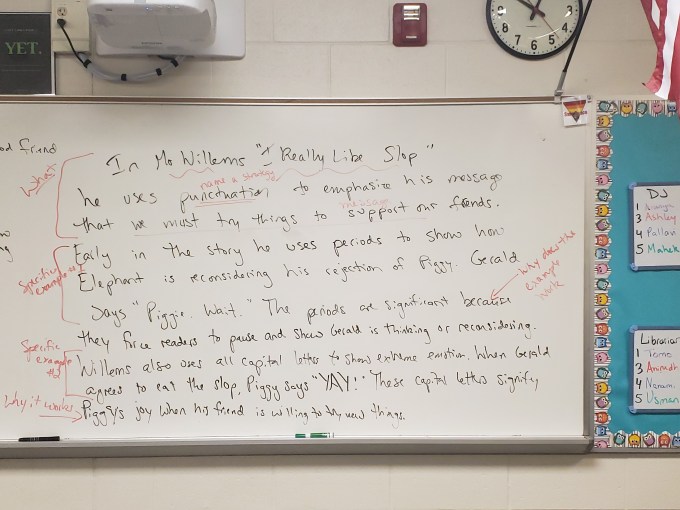 YET.
od friend
In Mo Willems "I Really Like Slop"
What
name a strategy
he uses punctuation to emphasize his message
message
that we must try things to support our friends.
Early in the story he uses periods to show how
Specific example #1
Elephant is reconsidering his rejection of Piggy. Gerald
says "Piggie. Wait." The periods are significant because
why does the example work
they force readers to pause and show Gerald is thinking or reconsidering.
Specific example #2
Willems also uses all capital letter to show extreme emotion. When Gerald
agrees to eat the slop, Piggy says "YAY!" These capital letters signify
Why it works
Piggy's joy when his friend is willing to try new things.
DJ
1
3 Ashley
4 Pallavi
5 Mahek
Librarian
1
3 Anirudh
4
5 Usman